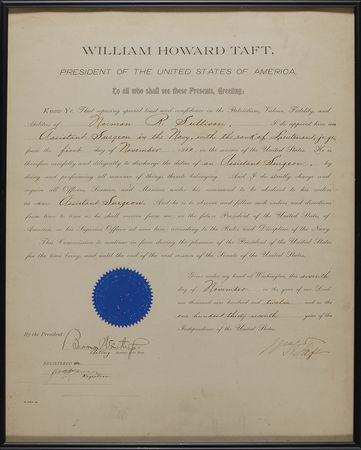 WILLIAM HOWARD TAFT,
PRESIDENT OF THE UNITED STATES OF AMERICA,
To all who shall see these Presents, Greeting:
Know Ye, That reposing special trust and confidence in the Patriotism, Valour, Fidelity, and
Abilities of Norman R. Sullivan, I do appoint him an
Assistant Surgeon in the Navy, with the rank of Lieutenant, j.g.
from the first day of November 1912, in the service of the United States. He is
therefore carefully and diligently to discharge the duties of an Assistant Surgeon, by
doing and performing all manner of things thereto belonging. And I do strictly charge and
require all Officers, Seamen, and Marines under his command to be obedient to his orders
as an Assistant Surgeon. And he is to observe and follow such orders and directions
from time to time as he shall receive from me, or the future President of the United States of
America, or his Superior Officer set over him, according to the Rules and Discipline of the Navy.
This Commission to continue in force during the pleasure of the President of the United States
for the time being, and until the end of the next session of the Senate of the United States.
Given under my hand at Washington, this seventh
day of November in the year of our Lord
one thousand nine hundred and twelve and in the
one hundred thirty seventh year of the
Independence of the United States.
By the President:
Wm H Taft
Acting
REGISTERED
Registrar